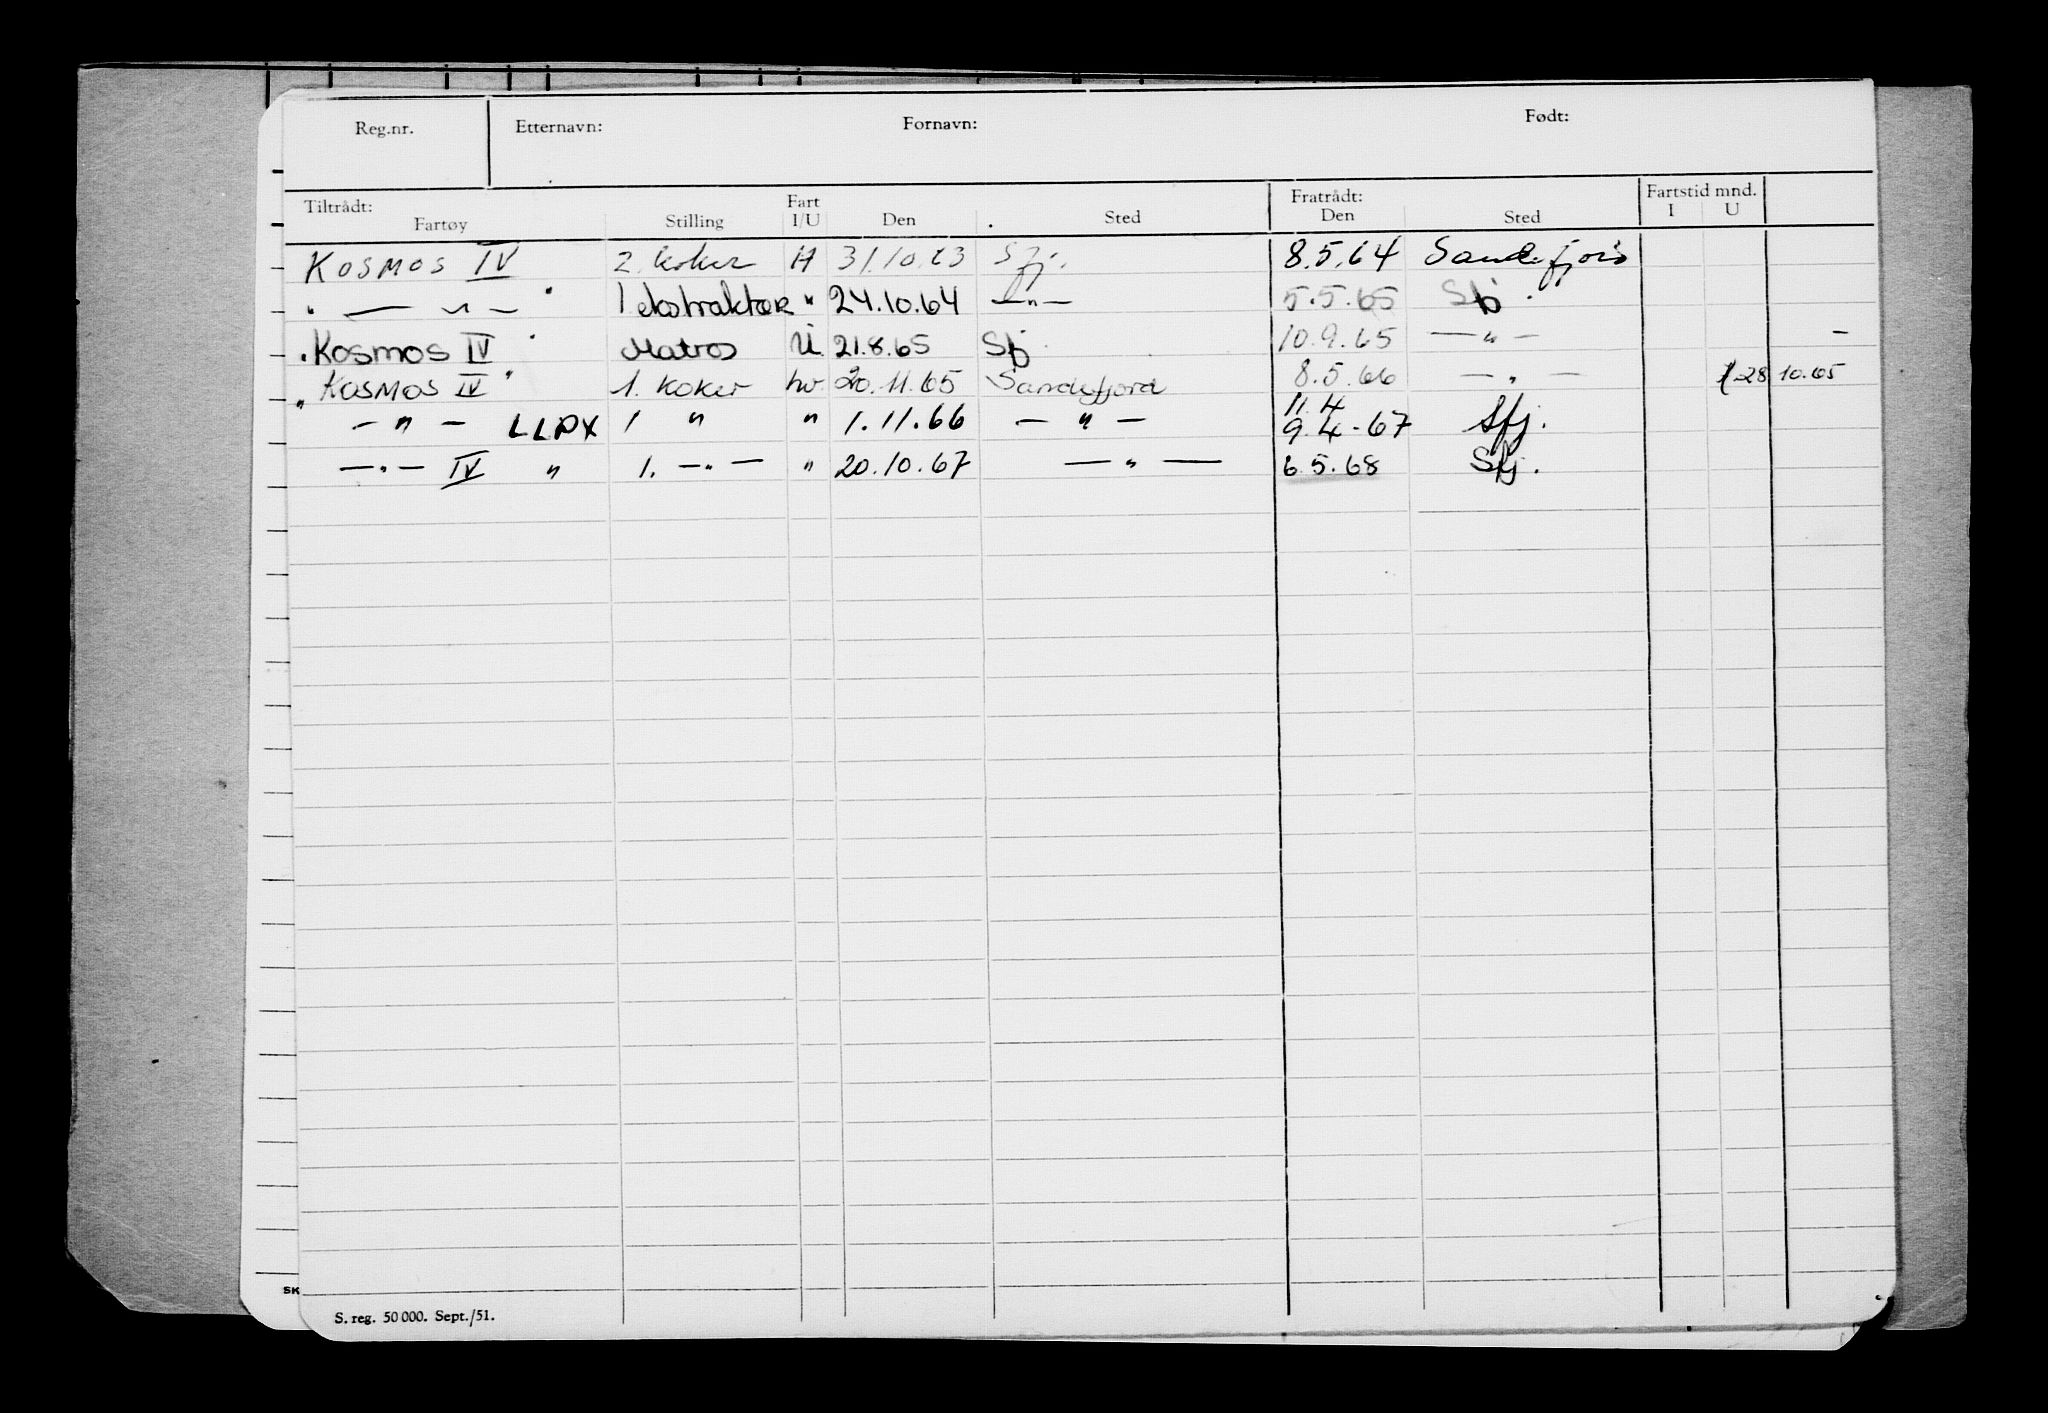 Reg.nr. Etternavn: Fornavn: Født:
Tiltrådt: Fratrådt: Fartstid mnd.
Fartøy Stilling Fart I/U Den Sted Den Sted I U
KOSMOS IV 2. koker H 31.10.63 Sfj. 8.5.64 Sandefjord
" — " — " 1 ekstraktør " 24.10.64 — " — 5.5.65 Sfj.
"Kosmos IV" Matros U. 21.8.65 Sfj 10.9.65 — " — –
"KOSMOS IV" 1. koker hv. 20.11.65 Sandefjord 8.5.66 — " — 28 10.65
— " — LLPX 1 " " 1.11.66 — " — 11.4 9.4-67 Sfj.
— " — IV " 1. — " — " 20.10.67 — " — 6.5.68 Sfj.
SK
S. reg. 50 000. Sept./51.